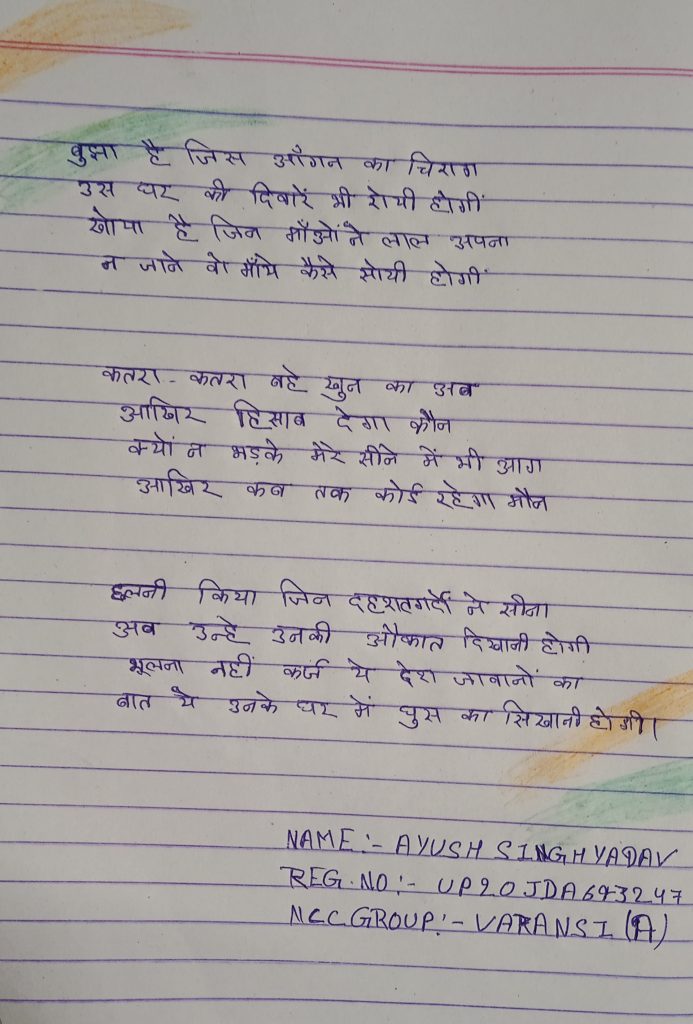 बुझा है जिस आँगन का चिराग
उस घर की दिवारें भी रोयी होगीं
खोया है जिन माँओं ने लाल अपना
न जाने वो माँये कैसे सोयी होगीं
कतरा - कतरा बहे खुन का अब
आखिर हिसाब देगा कौन
क्यों न भड़के मेरे सीने में भी आग
आखिर कब तक कोई रहेगा मौन
छलनी किया जिन दहशतगर्दों ने सीना
अब उन्हे उनकी औकात दिखानी होगी
भूलना नहीं कर्ज ये देश जावानों का
बात ये उनके घर में घुस का सिखानी होगी।
NAME:- AYUSH SINGH YADAV
REG.NO:- UP20JDA643247
NCC GROUP:- VARANSI (A)